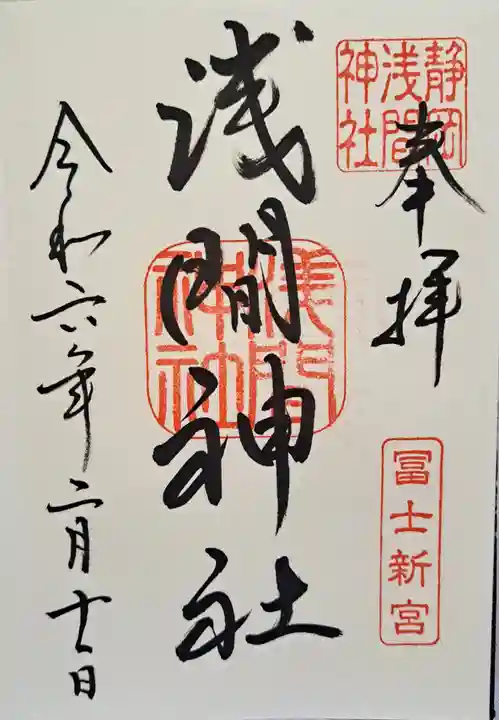 静岡
浅間
神社
奉拝
冨士新宮
浅間神社
浅間
神社
令和六年二月十一日